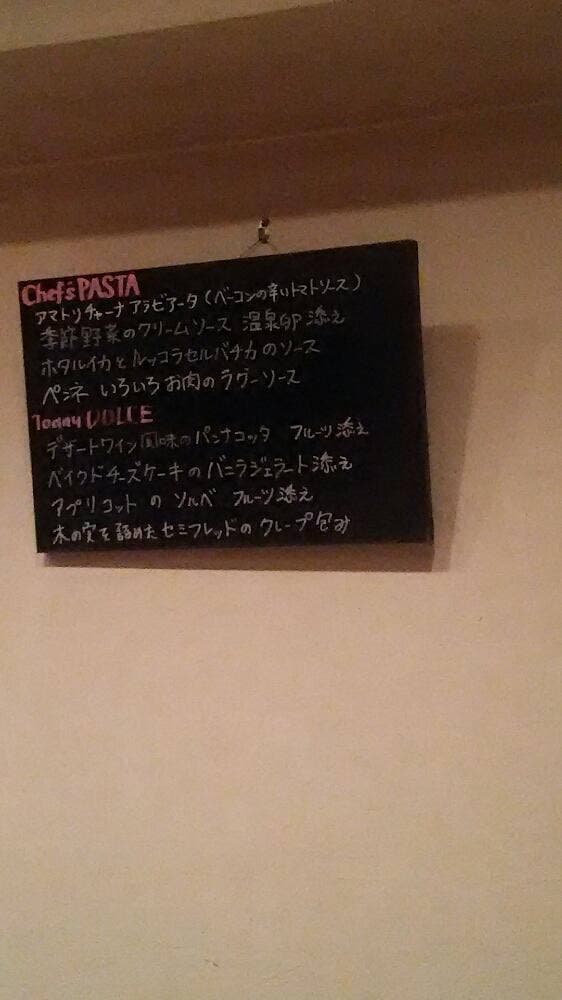 Chef's PASTA
アマトリチャーナ アラビアータ (ベーコンの辛いトマトソース)
季節野菜のクリームソース 温泉卵 添え
ホタルイカと ルッコラセルバチカ のソース
ペンネ いろいろお肉のラグーソース
DOLCE
デザートワイン風味のパンナコッタ フルーツ添え
ベイクドチーズケーキのバニラジェラート添え
アプリコット の ソルベ フルーツ添え
木の実を詰めたセミフレッドの クレープ包み